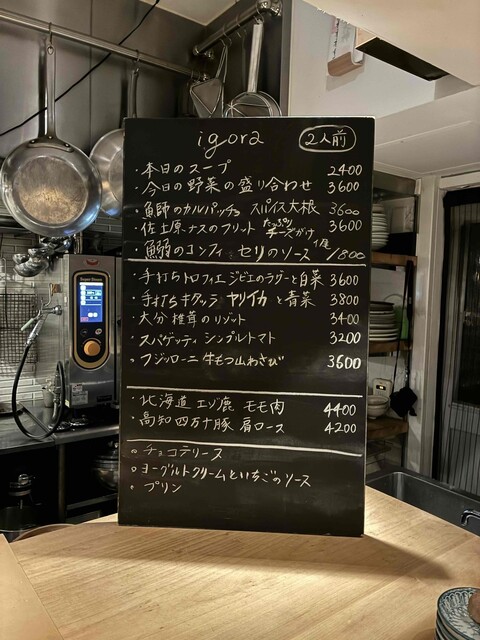 igora 2人前
・本日のスープ 2400
・今日の野菜の盛り合わせ 3600
・魚師のカルパッチョ スパイス大根 3600
・佐土原ナスのフリット たっぷりチーズがけ 3600
・魚鰯のコンフィ セリのソース 1尾 1800
・手打ちトロフィエ ジビエのラグーと白菜 3600
・手打ちキタッラ ヤリイカと青菜 3800
大分 椎茸のリゾット 3400
・スパゲッティ シンプルトマト 3200
。フジッローニ 牛もつ山わさび 3600
・北海道 エゾ鹿 モモ肉 4400
・高知四万十豚 肩ロース 4200
。チョコテリーヌ
。ヨーグルトクリームといちごのソース
。プリン